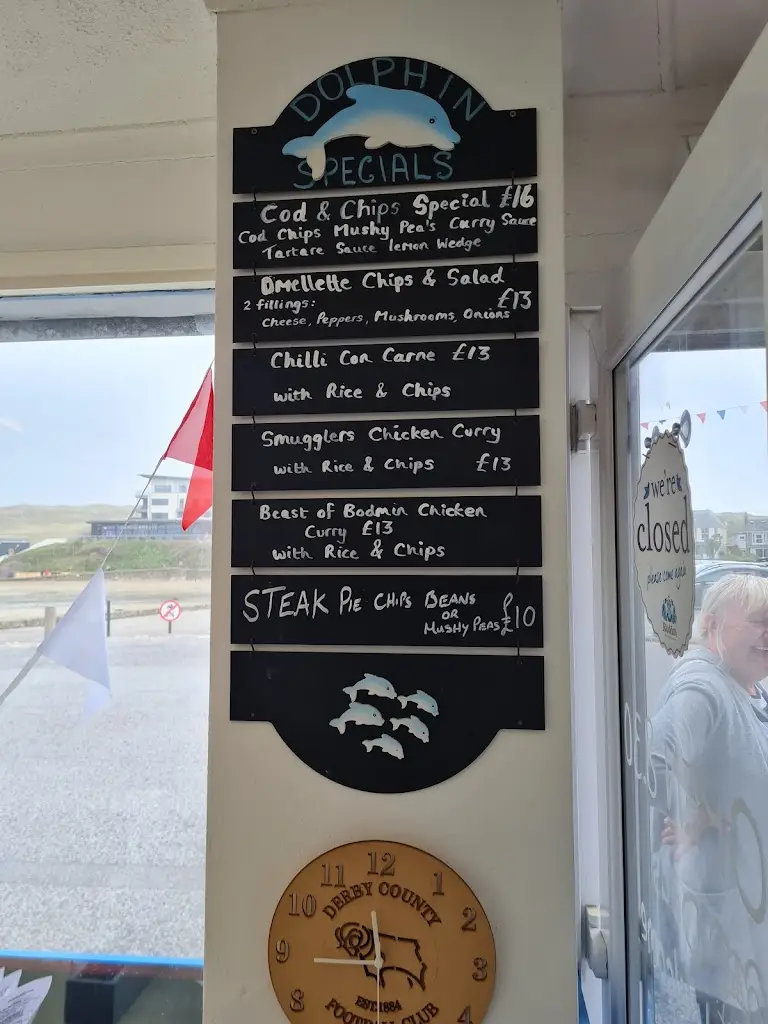 DOLPHIN
SPECIALS
Cod & Chips Special £16
Cod Chips Mushy Pea's Curry Sauce
Tartare Sauce lemon Wedge
Omellette Chips & Salad
2 fillings: £13
Cheese, Peppers, Mushrooms, Onions
Chilli Con Carne £13
with Rice & Chips
Smugglers Chicken Curry
with Rice & Chips £13
Beast of Bodmin Chicken
Curry £13
with Rice & Chips
STEAK PIE CHIPS BEANS
OR £10
MUSHY PEAS
we're
closed
please come again
DERBY COUNTY
12
11 1
10 2
9 3
8 4
EST.1884
FOOTBALL CLUB